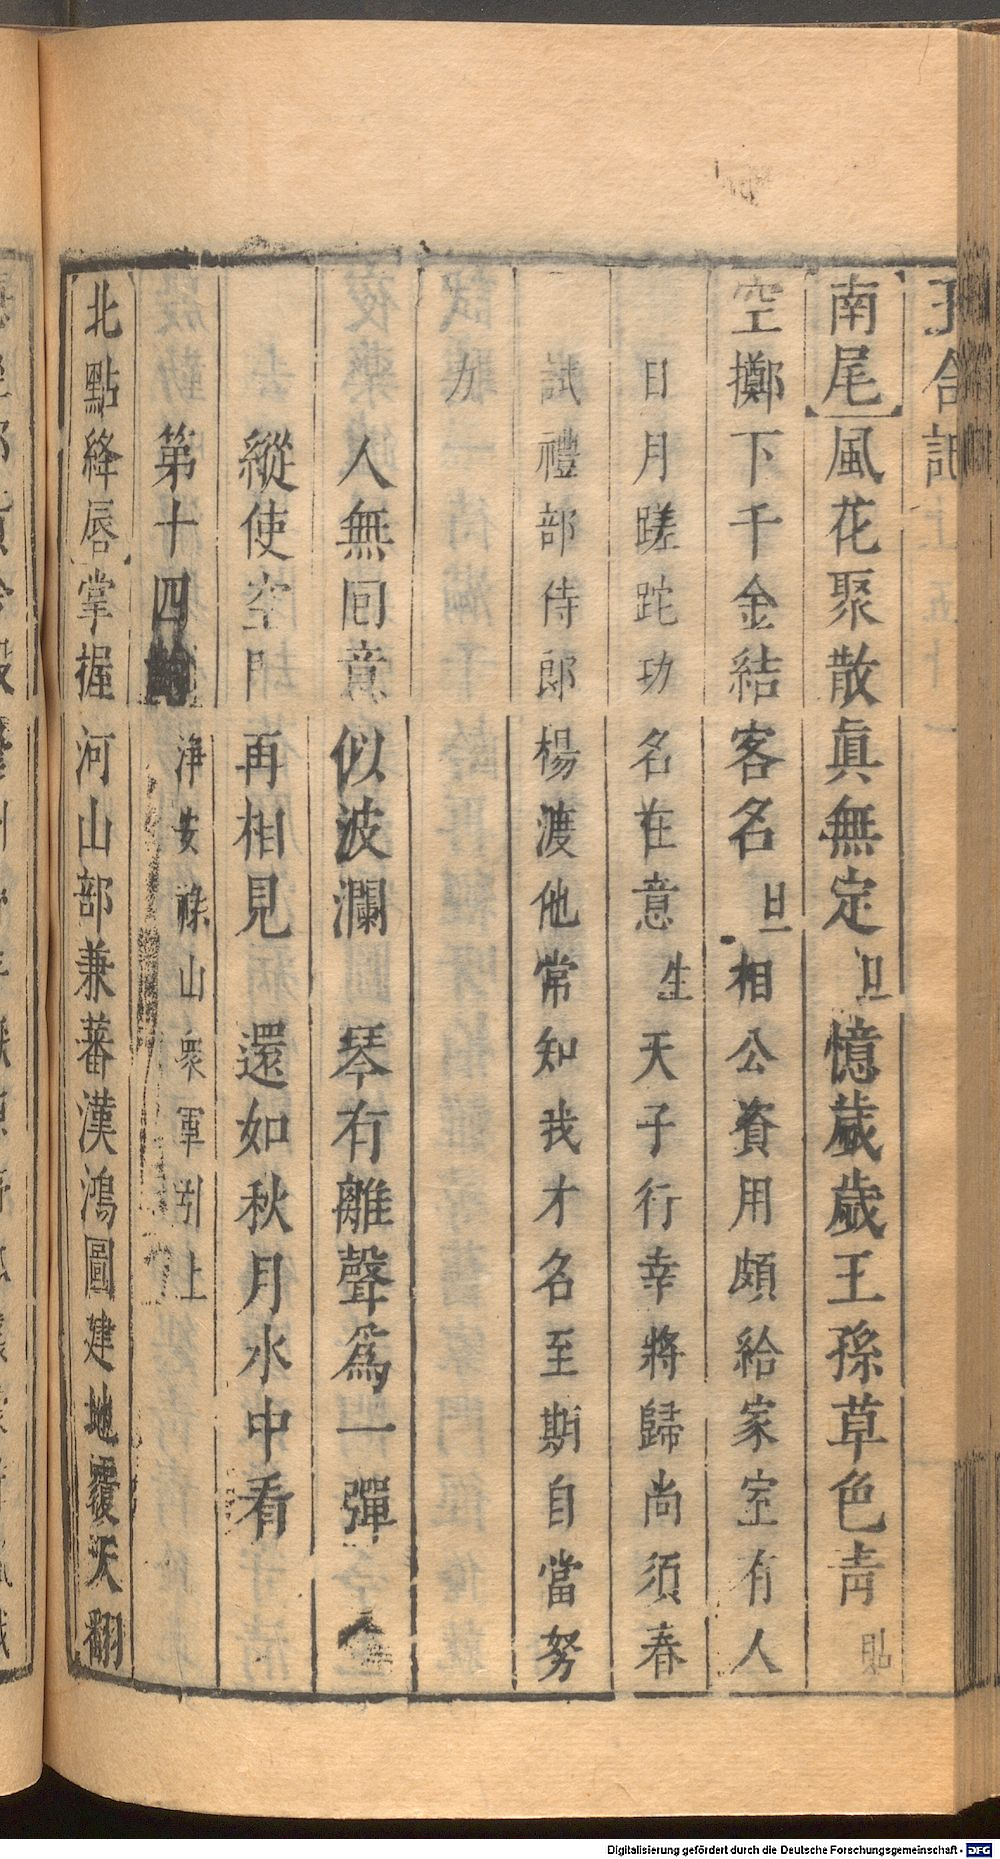 玉合記
【南尾】風花聚散眞無定 旦 憶歲歲王孫草色靑 貼
空擲下千金結客名 旦 相公資用頗給家室有人
日月蹉跎功名在意 生 天子行幸將歸尚須春
試禮部侍郎楊渡他常知我才名至期自當努
力
人無囘意似波瀾 琴有離聲爲一彈
縱使空門再相見 還如秋月水中看
第十四 淨安祿山衆軍引上
【北點絳唇】掌握河山部兼蕃漢鴻圖建地覆天翻
Digitalisierung gefördert durch die Deutsche Forschungsgemeinschaft - DFG